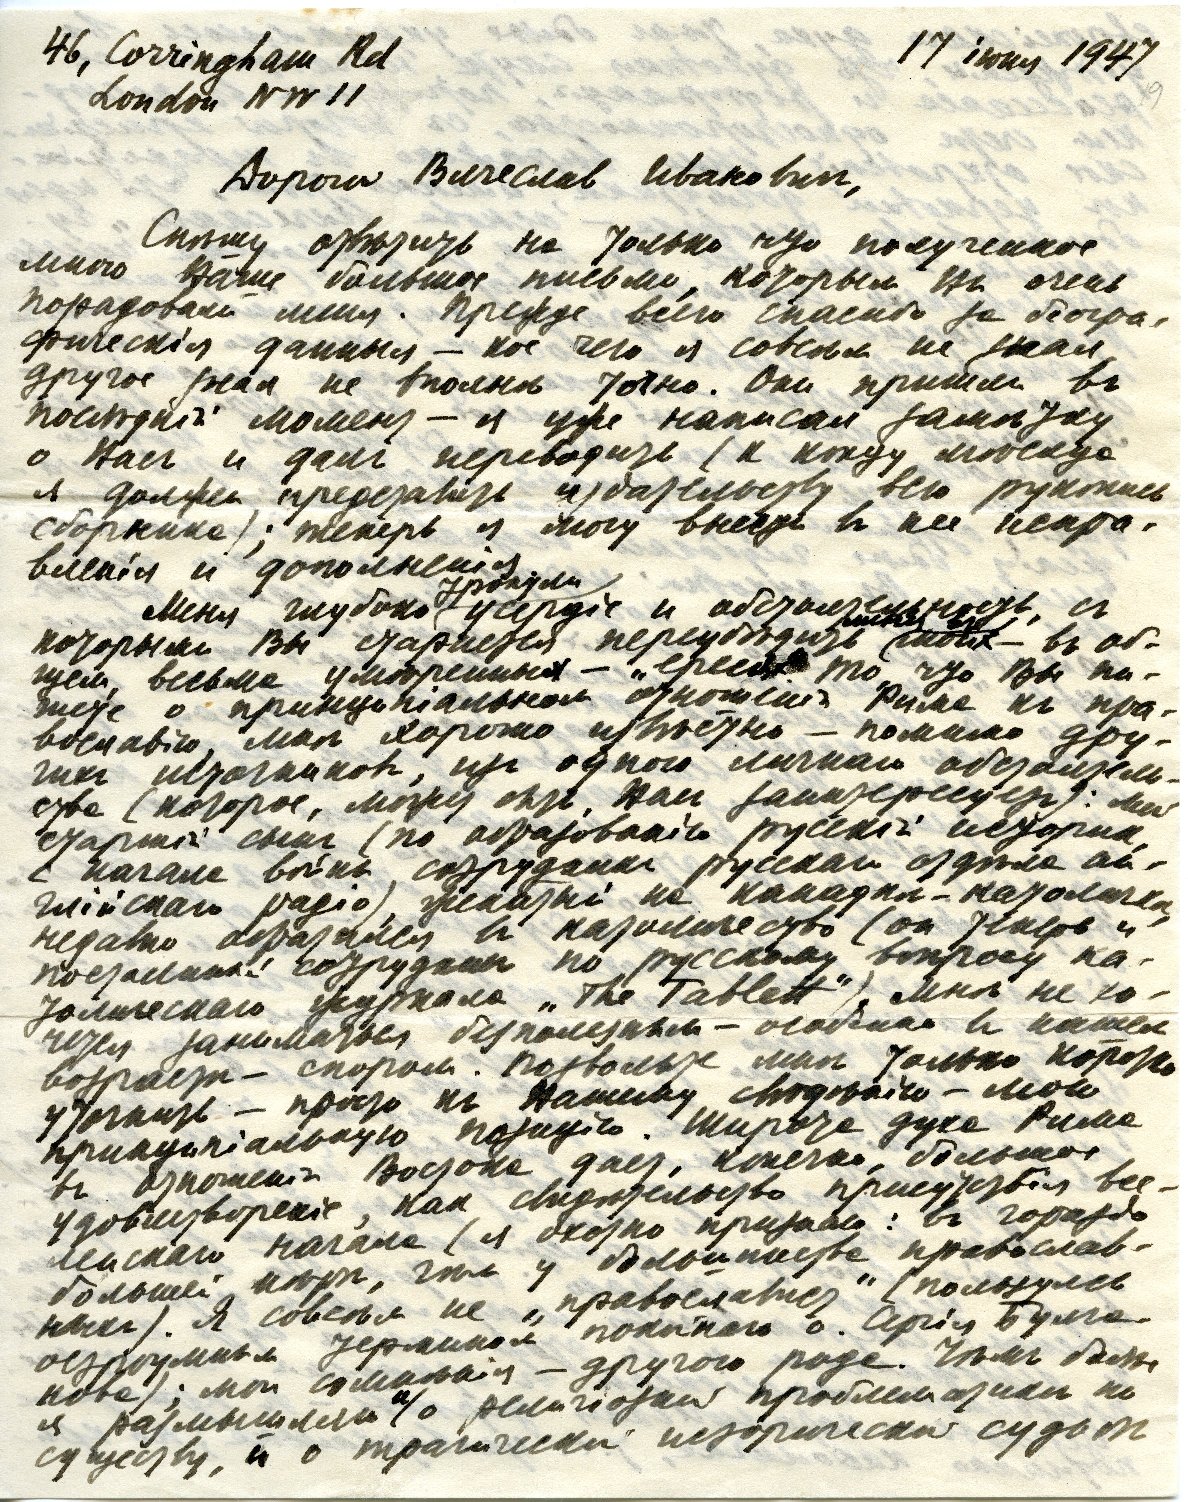 46, Corringham Rd
London NW 11
17 июня 1947
19
Дорогой Вячеслав Иванович,
Спѣшу отвѣтить на только что полученное
мною Ваше большое письмо, которым Вы очень
порадовали меня. Прежде всего спасибо за біогра-
фическія данныя – кое чего я совсѣм не знал,
другое знал не вполнѣ точно. Они пришли въ
послѣдній момент – я уже написал замѣтку
о Вас и дал переводить (к концу мѣсяца
я должен представить издательству всю рукопись
сборника); теперь я могу внести в нее испра-
вленія и дополненія.
Меня глубоко тронули усердіе и обстоятельность, с
которыми Вы стараетесь переубѣдить меня въ – въ об-
щем, весьма умѣренных – "ересях". То, что Вы пи-
шете о принципіальном отношеніи Рима къ пра-
вославію, мнѣ хорошо извѣстно – помимо дру-
гих источников, из одного личнаго обстоятель-
ства (которое, может быть, Вас заинтересует): мой
старшій сын (по образованію русскій историк,
с начала войны сотрудник русскаго отдѣла ан-
глійскаго радіо), женатый на канадкѣ-католичкѣ,
недавно обратился в католичество (он теперь и
постоянный сотрудник по русскому вопросу ка-
толическаго журнала "The Tablett"). Мнѣ не хо-
чется заниматься безполезным – особенно в нашем
возрастѣ – спором. Позвольте мнѣ только коротко
уточнить – просто къ Вашему свѣдѣнію – мою
принципіальную позицію. Широта духа Рима
в отношеніи Востока дает, конечно, большое
удовлетвореніе, как свидѣтельство присутствія все-
ленскаго начала (я охотно признаю: въ гораздо
большей мѣрѣ, чѣм у большинства православ-
ных). Я совсѣм не "православист" (пользуясь
остроумным термином покойнаго о. Сергія Булга-
кова); мои сомнѣнія – другого рода. Чѣмъ больше
я размышляю и о религіозной проблематикѣ по
существу, и о трагической исторической судьбѣ